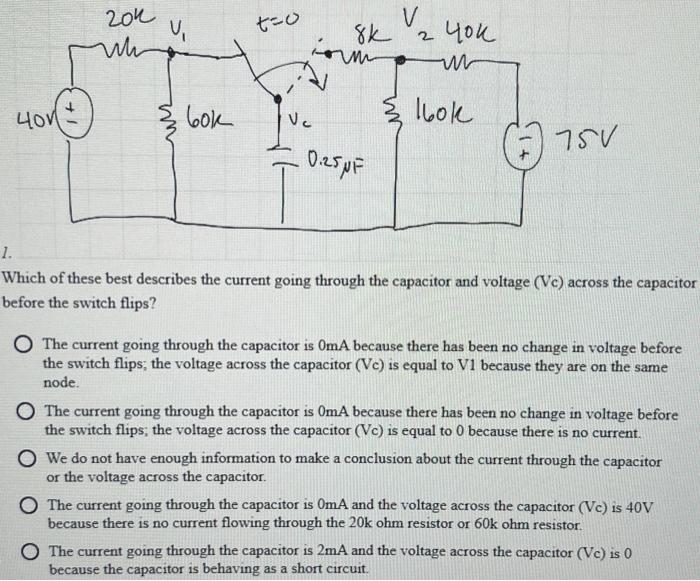 20k V1 t=0 8k V2 40k
40V + - 60k Vc 160k - + 75V
0.25µF
1.
Which of these best describes the current going through the capacitor and voltage (Vc) across the capacitor
before the switch flips?
The current going through the capacitor is 0mA because there has been no change in voltage before
the switch flips; the voltage across the capacitor (Vc) is equal to V1 because they are on the same
node.
The current going through the capacitor is 0mA because there has been no change in voltage before
the switch flips; the voltage across the capacitor (Vc) is equal to 0 because there is no current.
We do not have enough information to make a conclusion about the current through the capacitor
or the voltage across the capacitor.
The current going through the capacitor is 0mA and the voltage across the capacitor (Vc) is 40V
because there is no current flowing through the 20k ohm resistor or 60k ohm resistor.
The current going through the capacitor is 2mA and the voltage across the capacitor (Vc) is 0
because the capacitor is behaving as a short circuit.